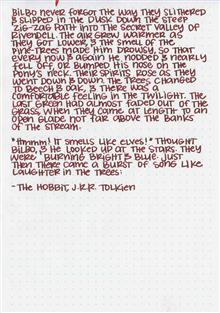 Bilbo never forgot the way they slithered
& slipped in the dusk down the steep
zig-zag path into the secret valley of
Rivendell. The air grew warmer as
they got lower, & the smell of the
pine-trees made him drowsy, so that
every now & again he nodded & nearly
fell off, or bumped his nose on the
pony's neck. Their spirits rose as they
went down & down. The trees changed
to beech & oak, & there was a
comfortable feeling in the twilight. The
last green had almost faded out of the
grass, when they came at length to an
open glade not far above the banks
of the stream.
"Hmmm! It smells like elves!" thought
Bilbo, & he looked up at the stars. They
were burning bright & blue. Just
then there came a burst of song like
laughter in the trees:
- The Hobbit, J.R.R. Tolkien